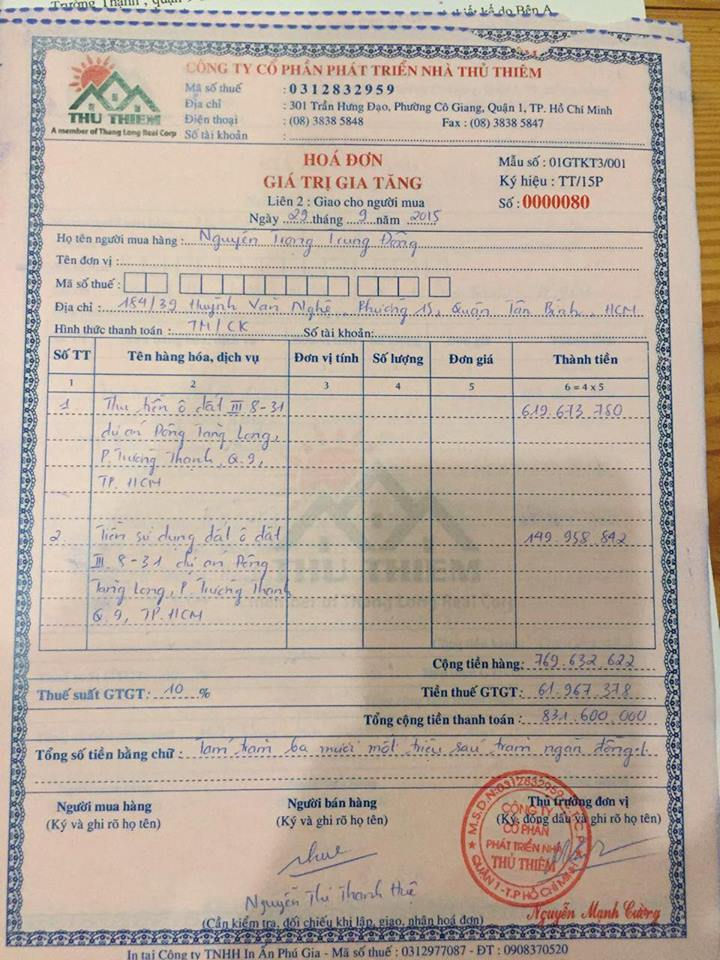 Trường Thạnh, quận 9
kế do Bên A
THU THIEM
A member of Thang Long Real Corp
CÔNG TY CỔ PHẦN PHÁT TRIỂN NHÀ THỦ THIÊM
Mã số thuế : 0312832959
Địa chỉ : 301 Trần Hưng Đạo, Phường Cô Giang, Quận 1, TP. Hồ Chí Minh
Điện thoại : (08) 3838 5848 Fax : (08) 3838 5847
Số tài khoản :
HOÁ ĐƠN
GIÁ TRỊ GIA TĂNG
Liên 2 : Giao cho người mua
Ngày 29 tháng 9 năm 2015
Mẫu số : 01GTKT3/001
Ký hiệu : TT/15P
Số : 0000080
Họ tên người mua hàng : Nguyễn Trọng Trung Đông
Tên đơn vị :
Mã số thuế :
Địa chỉ : 184/39 Huỳnh Văn Nghệ, Phường 15, Quận Tân Bình, HCM
Hình thức thanh toán : TM/CK Số tài khoản:
Số TT Tên hàng hóa, dịch vụ Đơn vị tính Số lượng Đơn giá Thành tiền
1 2 3 4 5 6 = 4 x 5
1 Thu tiền ô đất III 8-31 619.673.780
dự án Đông Tăng Long,
P. Trường Thạnh, Q.9,
TP. HCM
2 Tiền sử dụng đất ô đất 149 958 842
III.8-31 dự án Đông
Tăng Long, P. Trường Thạnh
Q.9, TP.HCM
THU THIEM
A member of Thang Long Real Corp
Cộng tiền hàng: 769.632.622
Thuế suất GTGT: 10 % Tiền thuế GTGT: 61.967.378
Tổng cộng tiền thanh toán: 831.600.000
Tổng số tiền bằng chữ: Tám trăm ba mươi mốt triệu sáu trăm ngàn đồng
Người mua hàng Người bán hàng Thủ trưởng đơn vị
(Ký và ghi rõ họ tên) (Ký và ghi rõ họ tên) (Ký, đóng dấu và ghi rõ họ tên)
M.S.D.N:0312832959
CÔNG TY
CỔ PHẦN
PHÁT TRIỂN NHÀ
THỦ THIÊM
QUẬN 1-T.P HỒ CHÍ MINH
Nguyễn Thị Thanh Huệ
Nguyễn Mạnh Cường
(Cần kiểm tra, đối chiếu khi lập, giao, nhận hoá đơn)
In tại Công ty TNHH In Ấn Phú Gia - Mã số thuế : 0312977087 - ĐT : 0908370520